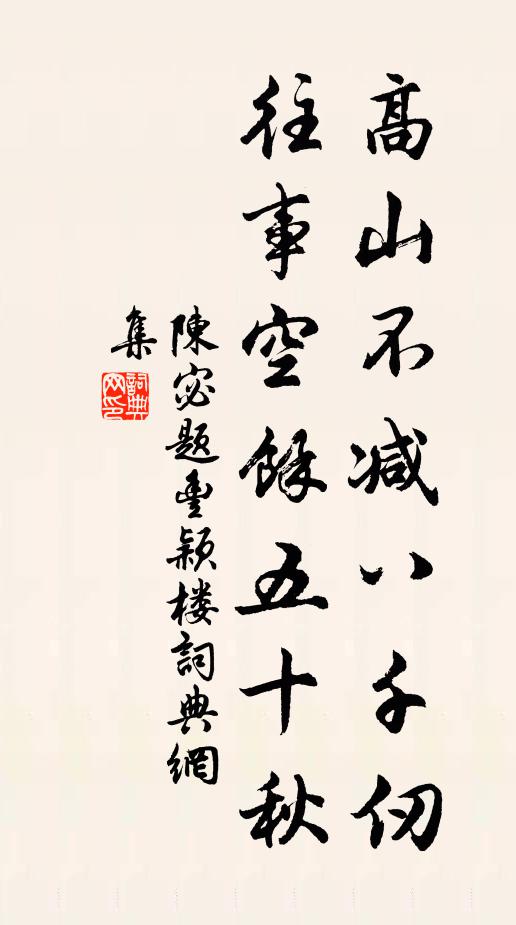 高山不减八千仞
往事空餘五十秋
陳宓題豐颖楼詞典網
集
詞典
网印